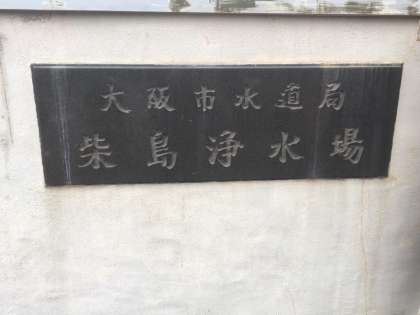 大阪市水道局
柴島浄水場